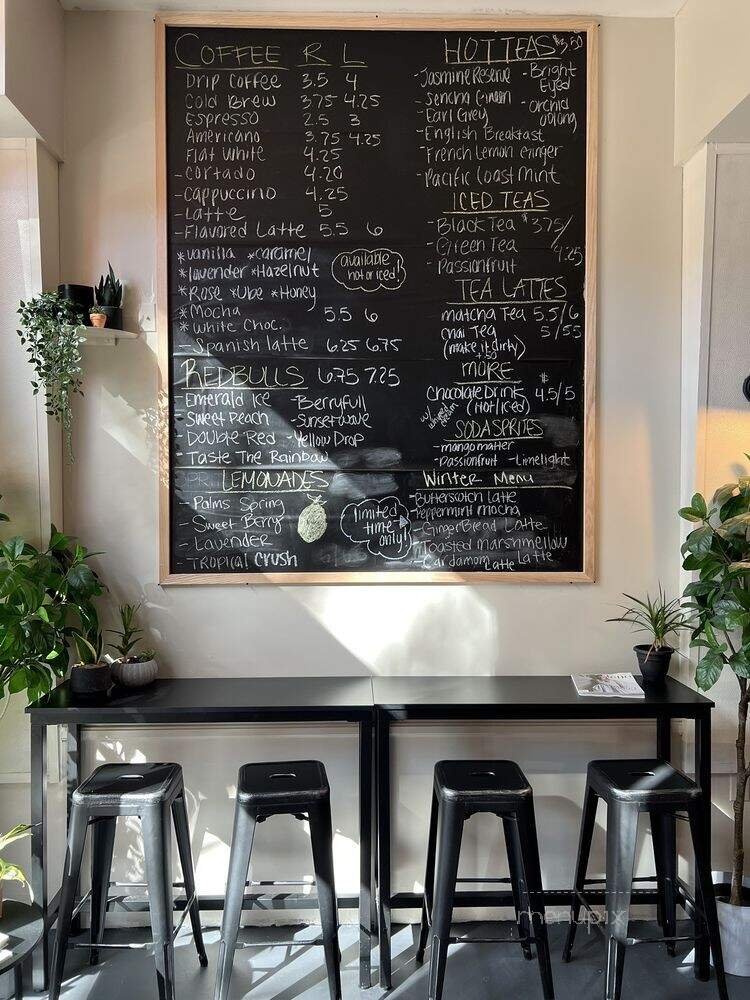 COFFEE R L
DRIP COFFEE 3.5 4
COLD BREW 3.75 4.25
ESPRESSO 2.5 3
AMERICANO 3.75 4.25
FLAT WHITE 4.25
- CORTADO 4.20
- CAPPUCCINO 4.25
- LATTE 5
- FLAVORED LATTE 5.5 6
*VANILLA *CARAMEL
*LAVENDER *HAZELNUT
*ROSE *UBE *HONEY
*MOCHA 5.5 6
*WHITE CHOC.
- SPANISH LATTE 6.25 6.75
available
hot or iced!
REDBULLS 6.75 7.25
- EMERALD ICE - BERRYFULL
- SWEET PEACH - SUNSETWAVE
- DOUBLE RED - YELLOW DROP
- TASTE THE RAINBOW
LEMONADES
- PALMS SPRING
- SWEET BERRY
- LAVENDER
- TROPICAL CRUSH
limited
time
only!
HOT TEAS $3.50
- Jasmine Reserve - Bright Eyed
- Sencha Green - orchid oolong
- Earl Grey
- English Breakfast
- French Lemon Ginger
- Pacific Coast Mint
ICED TEAS
- Black Tea $3.75/
- Green Tea 4.25
- Passionfruit
TEA LATTES
matcha Tea 5.5/6
chai Tea 5/5.5
(make it dirty)
+.50
MORE
Chocolate Drink $ 4.5/5
(Hot/Iced)
SODA SPRITES
- mango matter
- Passionfruit - Limelight
Winter Menu
- Butterscotch latte
- Peppermint mocha
- GingerBread Latte
- Toasted marshmellow Latte
- Cardamom Latte
menupix